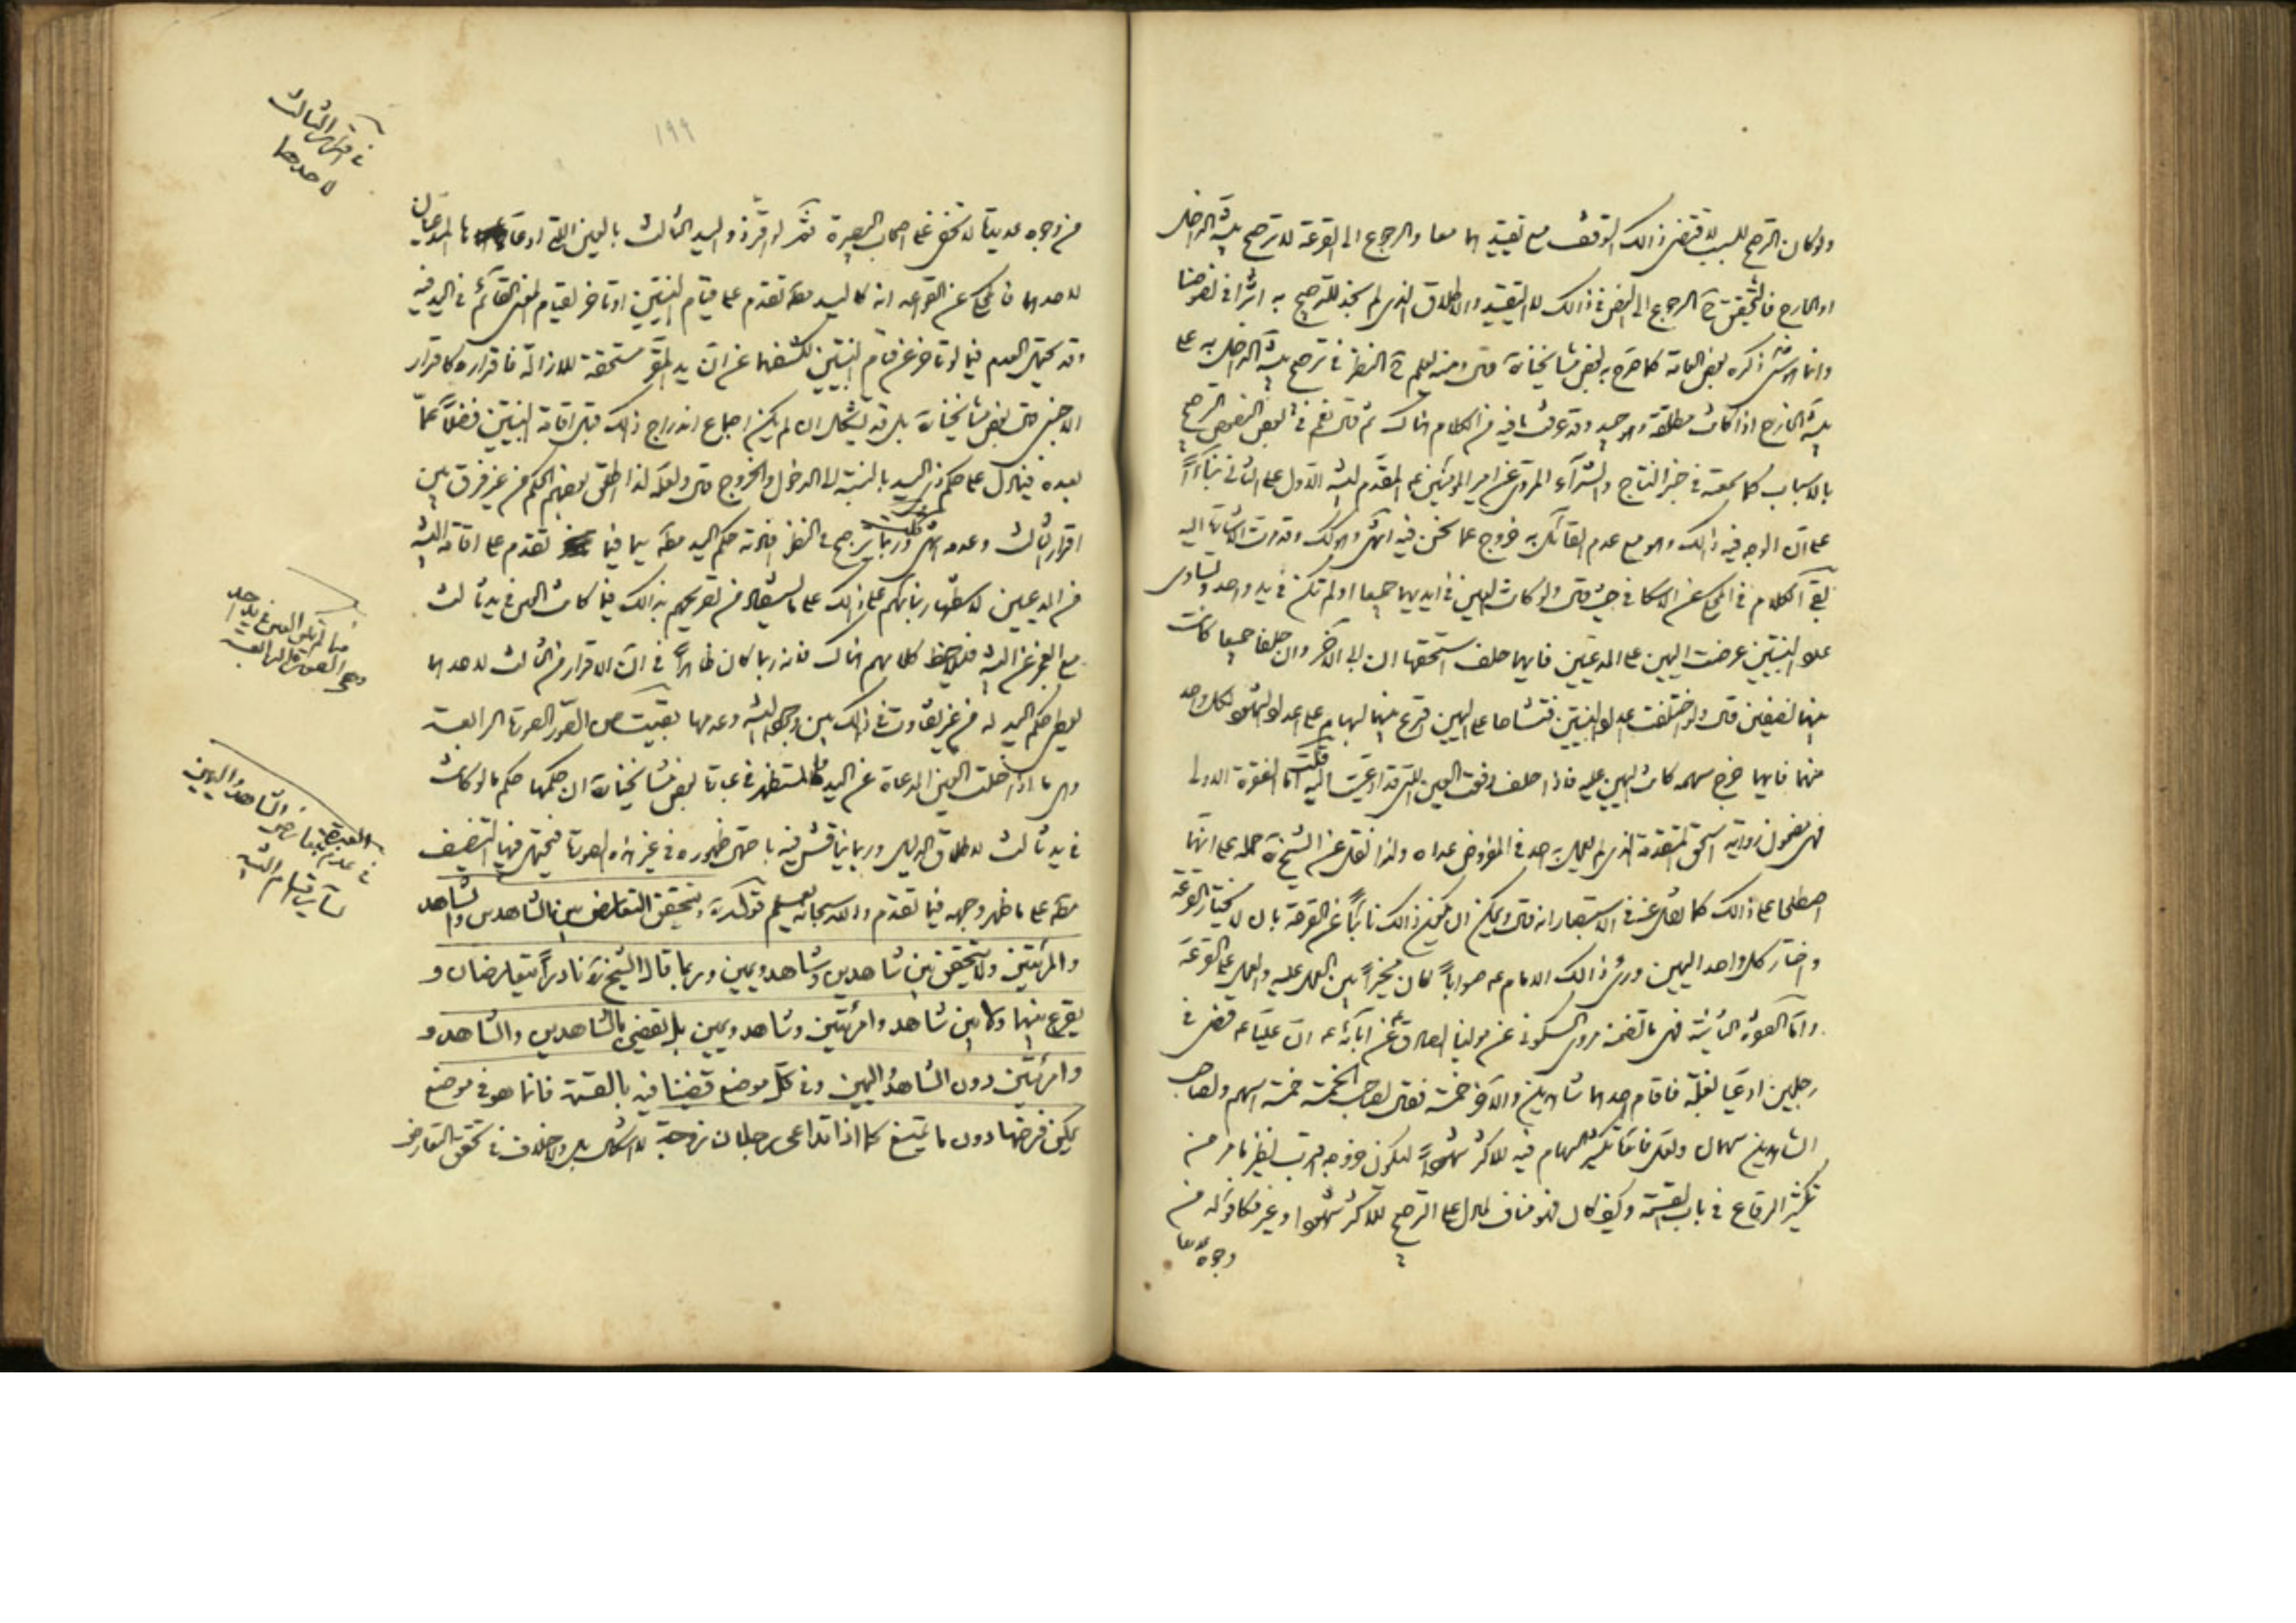 ولو كان الترجيح للسبب لاقتضى ذالك التوقف مع تقييدهما معا والرجوع الى القرعة لا ترجيح بينة الداخل
او الخارج فالتحقيق ح الرجوع الى النص في ذالك لا التقييد والاطلاق الذى لم نجد للترجيح به اثرا في نصوصنا
وانما هو شئ ذكره بعض العامة كما صرح به بعض مشايخنا ره قال ومنه يعلم ح النظر في ترجيح بينة الداخل به على
بينة الخارج اذا كانت مطلقة وقد عرفت ما فيه من الكلام هناك ثم قال نعم في بعض النصوص الترجيح
بالاسباب كما سمعته في خبر النتاج والشراء المروى عن امير المؤمنين ع المقدم لبينة الاول على الثاني بناءاً
على ان الوجه فيه ذالك وهو مع عدم القائل به خروج عما نحن فيه انتهى وهو كك وقد مرت الاشارة اليه
بقى الكلام في المحكى عن الاسكافي حيث قال ولو كانت العين في ايديهما جميعا اولم تكن في يد واحد وتساوى
عدد البينتين عرضت اليمين على المدعيين فايهما حلف استحقها ان ابى الاخر وان حلفا جميعا كانت
بينهما نصفين قال ولو اختلفت عداد البينتين فتشاحا على اليمين اقرع بينهما بسهام على اعداد الشهود لكل واحد
منهما فايهما خرج سهمه كانت اليمين عليه فاذا حلف دفعت العين التى قد ادعيت اليه قلت اما الفقرة الاولى
فهى مضمون رواية اسحق المتقدمة الذى لم يعمل به احد في المفروض عداه ولذا نقل عن الشيخ ره حمله على انهما
اصطلحا على ذالك كما نقل عنه في الاستبصار انه قال ويمكن ان يكون ذالك نائباً عن القرعة بان لا يختار القرعة
واختار كل واحد اليمين ورأى ذالك الامام ع صواباً كان مخيراً بين العمل عليه والعمل على القرعة
واما الفقرة الثانية فهى ما تضمنه مروى السكوني عن مولينا الصادق ع عن آبائه ع ان علياً ع قضى في
رجلين ادعيا بغلة فاقام احدهما شاهدين والاخر خمسة فقال لصاحب الخمسة خمسة اسهم ولصاحب
الشاهدين سهمان ولعل فائدة تكثير السهام فيه للاكثر شهوداً ليكون خروجه اقرب نظير ما مر من
تكثير الرقاع في باب القسمة وكيف كان فهو مناف لما دل على الترجيح للاكثر شهودا وغير مكافؤ له من
وجوه عديدة
١٩٩
من وجوه عديدة لا تخفى على اصحاب البصيرة ثم لو اقر ذو اليد الثالث بالعين التى ادعاها المدعيان
لاحدهما فالمحكى عن القواعد انه كاليد مطلقا تقدم على قيام البينتين او تاخر لقيام المعنى القائم في اليد فيه
وقد يحتمل العدم فيما لو تاخر عن قيام البينتين لكشفهما عن ان يد المقر مستحقة للازالة فاقراره كاقرار
الاجنبى قال بعض مشايخنا ره بل قد يشكل ان لم يكن اجماع اندراج ذلك قبل اقامة البينتين فضلاً عما
بعده فيتنزل على حكم ذى اليد بالنسبة الى الدخول والخروج قال ولعله لذا اطلق بعضهم الحكم من غير فرق بين
اقرار الثالث وعدمه انتهى قلت وربما يرجح في النظر افادته حكم اليد مطلقا سيما فيما تقدم على اقامة البينة
من المدعيين لاستظهار بنائهم على ذالك على ما يستفاد من تصريحهم بذالك فيما كانت العين في يد ثالث
مع العجز عن البينة فليلاحظ كلامهم هناك فانه ربما كان ظاهراً في ان الاقرار من الثالث لاحدهما
يعطى حكم اليد له من غير تفاوت في ذالك بين وجود البينة وعدمها بقيت من الصور الصورة الرابعة
وهى ما اذا خلت العين المدعاة عن اليد فالمستظهر في عبارة بعض مشايخنا ره ان حكمها حكم ما لو كانت
في يد ثالث لاطلاق الدليل وربما يناقش فيه باحتمال ظهوره في غير هذه الصورة فيحتمل فيها التنصيف
مطلقا على ما ظهر وجهه فيما تقدم والله سبحانه يعلم قوله قده ويتحقق التعارض بين الشاهدين والشاهد
والمرئتين ولا يتحقق بين شاهدين وشاهد ويمين وربما قال الشيخ ره نادراً يتعارضان و
يقرع بينهما ولا بين شاهد وامرئتين وشاهد ويمين بل يقضى بالشاهدين والشاهد و
وامرئتين دون الشاهد واليمين وفى كل موضع قضينا فيه بالقسمة فانما هو فى موضع
يمكن فرضها دون ما يمتنع كما اذا تداعى رجلان زوجة لا اشكال بل ولا خلاف في تحقق التعارض
في اقرار الثالث
لاحدهما
فيما لم يكن العين في يد احد
وهى الصورة الرابعة
في عدم تعارض الشاهد واليمين